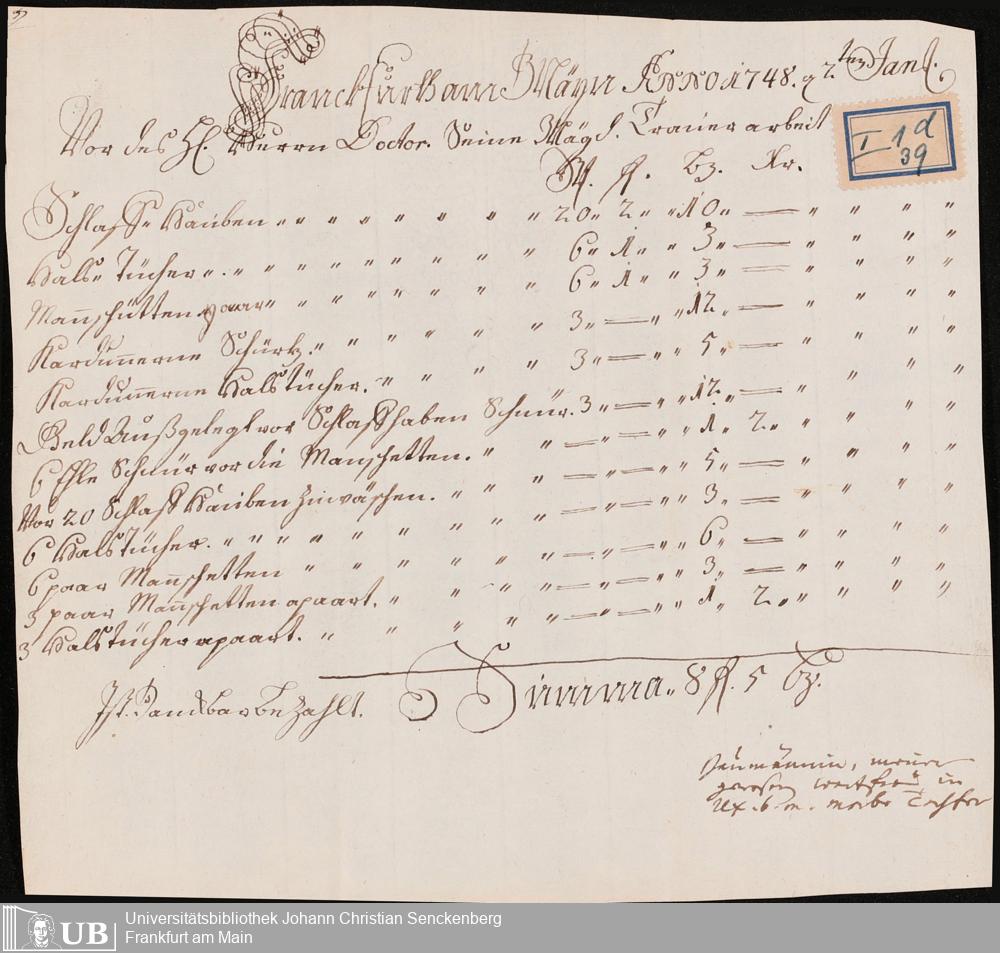 Franckfurth am Mäyn ANNO 1748. 2ten Jan.
Vor des H. Herrn Doctor. Seine Mägd. Trauer arbeit
St. fl. bz. Xr.
Schlaff Hauben 20 " 2 " 10 " —
Hals Tücher 6 " 1 " 3 " —
Manschütten paar 6 " 1 " 3 " —
Kardunnerne Schürtz. 3 " — " 12 " —
Kardunnerne Hals Tücher. 3 " — " 5 " —
Geld Außgelegt vor Schlaffhaben Schnür. 3 " — " 12 " —
6 Ehle Schnür vor die Manschetten. " — " — " 1 " 2 "
Vor 20 Schlaff Hauben zu wäschen. " — " — " 5 " —
6 Hals Tücher. " — " — " 3 " —
6 paar Manschetten " — " — " 6 " —
3 paar Manschetten apaart. " — " — " 3 " —
3 Hals tücher apaart. " — " — " 1 " 2 "
Summa. 8 fl. 5 bz.
Ist Danckbar bezahlt.
in
Ux. b. m. Tochter
I 1 d
39
UB
Universitätsbibliothek Johann Christian Senckenberg
Frankfurt am Main